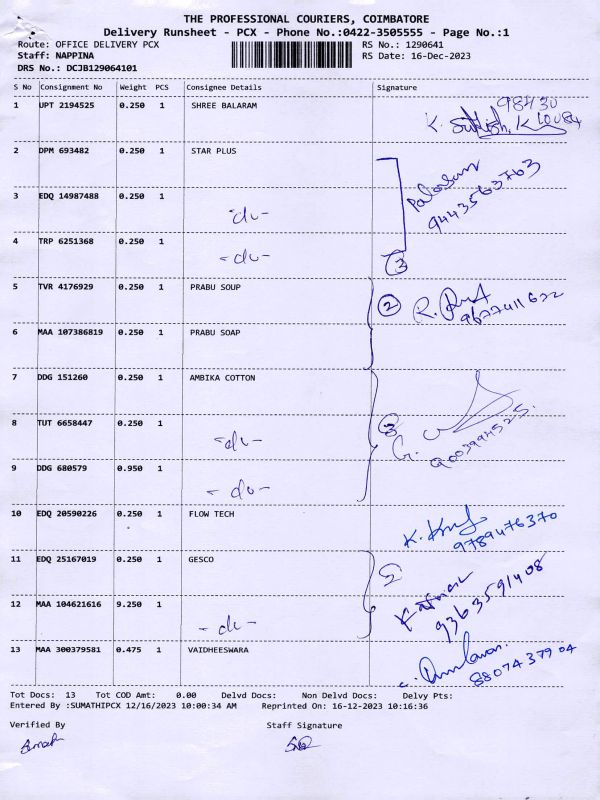 THE PROFESSIONAL COURIERS, COIMBATORE
Delivery Runsheet - PCX - Phone No.:0422-3505555 - Page No.:1
Route: OFFICE DELIVERY PCX RS No.: 1290641
Staff: NAPPINA RS Date: 16-Dec-2023
DRS No.: DCJB129064101
S No Consignment No Weight PCS Consignee Details Signature
1 UPT 2194525 0.250 1 SHREE BALARAM 98430
K. 10084
2 DPM 693482 0.250 1 STAR PLUS
3 EDQ 14987488 0.250 1 -do- 9443563763
4 TRP 6251368 0.250 1 -do- 3
5 TVR 4176929 0.250 1 PRABU SOUP 2 R. 9677411622
6 MAA 107386819 0.250 1 PRABU SOAP
7 DDG 151260 0.250 1 AMBIKA COTTON
8 TUT 6658447 0.250 1 -do- 3 G. 9003994525
9 DDG 680579 0.950 1 -do-
10 EDQ 20590226 0.250 1 FLOW TECH K. 9789476370
11 EDQ 25167019 0.250 1 GESCO 2
12 MAA 104621616 9.250 1 -do- 9363591408
13 MAA 300379581 0.475 1 VAIDHEESWARA 8807437904
Tot Docs: 13 Tot COD Amt: 0.00 Delvd Docs: Non Delvd Docs: Delvy Pts:
Entered By :SUMATHIPCX 12/16/2023 10:00:34 AM Reprinted On: 16-12-2023 10:16:36
Verified By Staff Signature